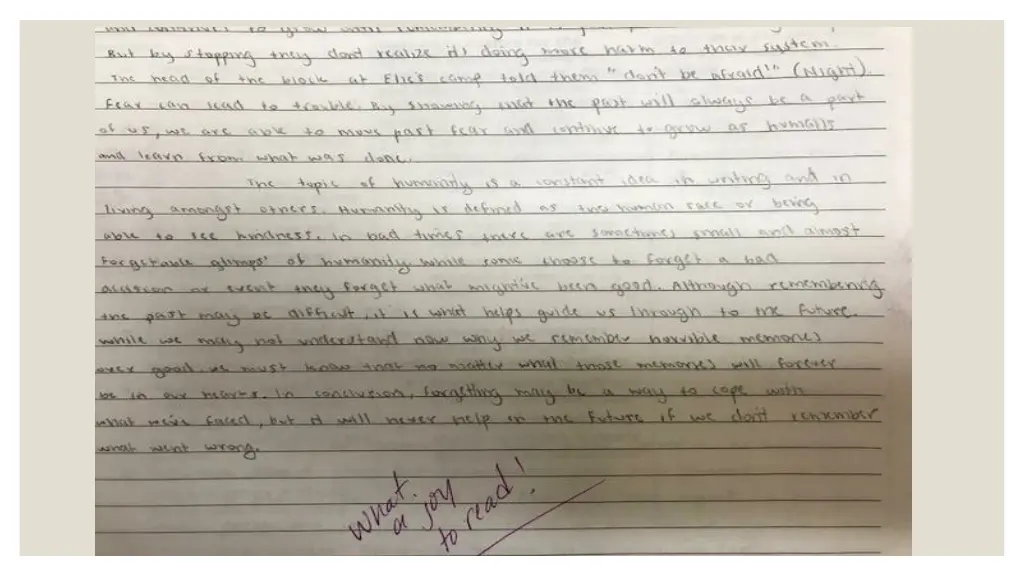 to grow with
But by stopping they dont realize its doing more harm to their system.
The head of the block at Elie's camp told them "don't be afraid" (Night).
Fear can lead to trouble. By showing that the past will always be a part
of us, we are able to move past fear and continue to grow as humans
and learn from what was done.
The topic of humanity is a constant idea in writing and in
living amongst others. Humanity is defined as the human race or being
able to see kindness. In bad times there are sometimes small and almost
forgetable glimps' of humanity while some choose to forget a bad
or event they forget what might've been good. Although remembering
the past may be difficult, it is what helps guide us through to the future.
While we may not understand now why we remember horrible memories
over good, we must know that no matter what those memories will forever
be in our hearts. In conclusion, forgetting may be a way to cope with
what we've faced, but it will never help in the future if we don't remember
what went wrong.
What
a joy
to read!